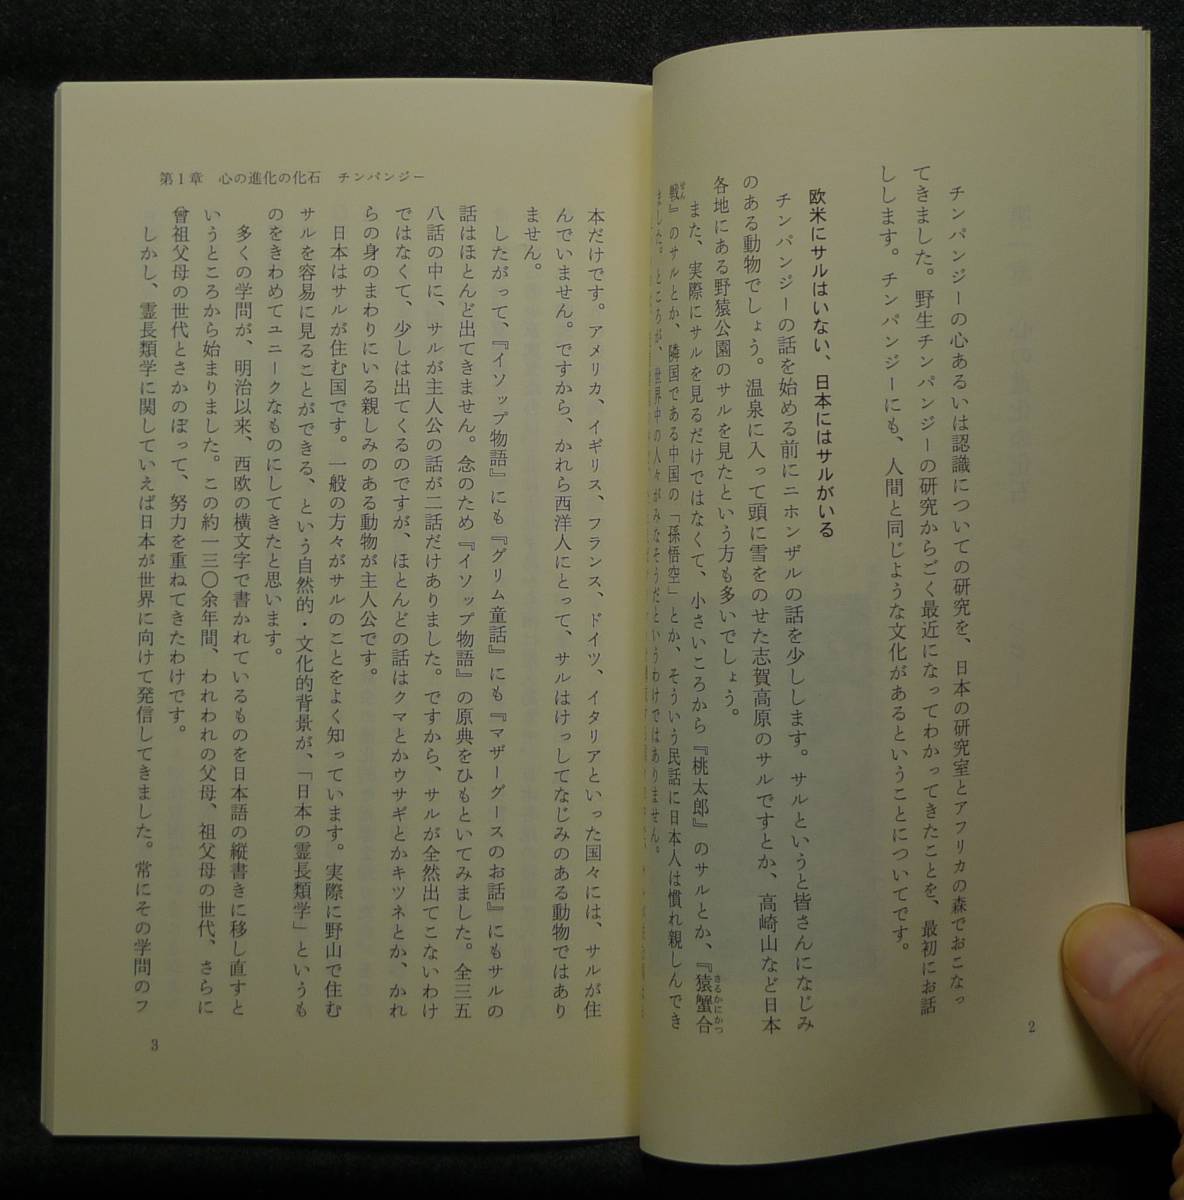 チンパンジーの心あるいは認識についての研究を、日本の研究室とアフリカの森でおこなっ
てきました。野生チンパンジーの研究からごく最近になってわかってきたことを、最初にお話
しします。チンパンジーにも、人間と同じような文化があるということについてです。
欧米にサルはいない、日本にはサルがいる
チンパンジーの話を始める前にニホンザルの話を少しします。サルというと皆さんになじみ
のある動物でしょう。温泉に入って頭に雪をのせた志賀高原のサルですとか、高崎山など日本
各地にある野猿公園のサルを見たという方も多いでしょう。
また、実際にサルを見るだけではなくて、小さいころから『桃太郎』のサルとか、『猿蟹合
さるかにかつ
戦』のサルとか、隣国である中国の「孫悟空」とか、そういう民話に日本人は慣れ親しんでき
せん
ました。ところが、世界中の人々がみなそうだというわけではありません。
2
第1章 心の進化の化石 チンパンジー
本だけです。アメリカ、イギリス、フランス、ドイツ、イタリアといった国々には、サルが住
んでいません。ですから、かれら西洋人にとって、サルはけっしてなじみのある動物ではあり
ません。
したがって、『イソップ物語』にも『グリム童話』にも『マザーグースのお話』にもサルの
話はほとんど出てきません。念のため『イソップ物語』の原典をひもといてみました。全三五
八話の中に、サルが主人公の話が二話だけありました。ですから、サルが全然出てこないわけ
ではなくて、少しは出てくるのですが、ほとんどの話はクマとかウサギとかキツネとか、かれ
らの身のまわりにいる親しみのある動物が主人公です。
日本はサルが住む国です。一般の方々がサルのことをよく知っています。実際に野山で住む
サルを容易に見ることができる、という自然的・文化的背景が、「日本の霊長類学」というも
のをきわめてユニークなものにしてきたと思います。
多くの学問が、明治以来、西欧の横文字で書かれているものを日本語の縦書きに移し直すと
いうところから始まりました。この約一三〇余年間、われわれの父母、祖父母の世代、さらに
曾祖父母の世代とさかのぼって、努力を重ねてきたわけです。
しかし、霊長類学に関していえば日本が世界に向けて発信してきました。常にその学問のフ
3